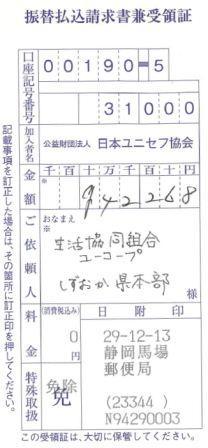 振替払込請求書兼受領証
口座記号番号
00190-5
31000
加入者名
公益財団法人 日本ユニセフ協会
金額
千百十万千百十円
¥942268
ご依頼人
おなまえ
生活協同組合
ユーコープ
しずおか県本部
様
料金
(消費税込み)
0
円
特殊取扱
免除
免
日附印
29-12-13
静岡馬場
郵便局
(23344)
N94290003
記載事項を訂正した場合は、その箇所に訂正印を押してください。
この受領証は、大切に保管してください。